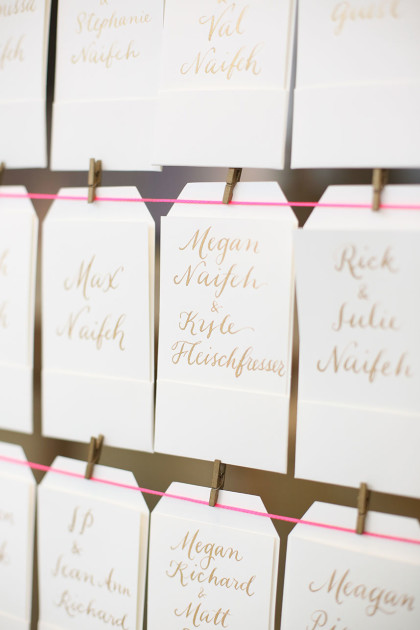 &
Stephanie
Naifeh
&
Val
Naifeh
Guest
Max
Naifeh
Megan
Naifeh
&
Kyle
Fleischfresser
Rick
&
Julie
Naifeh
JP
&
Jean Ann
Richard
Megan
Richard
&
Matt
Meagan